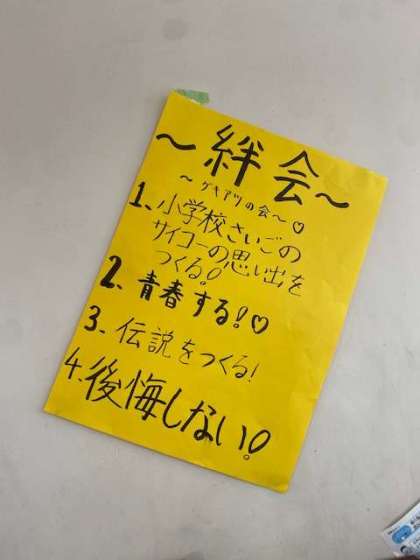 〜絆会〜
〜ゲキアツの会〜♡
1、小学校さいごの
サイコーの思い出を
つくる!
2、青春する!♡
3、伝説をつくる!
4、後悔しない!